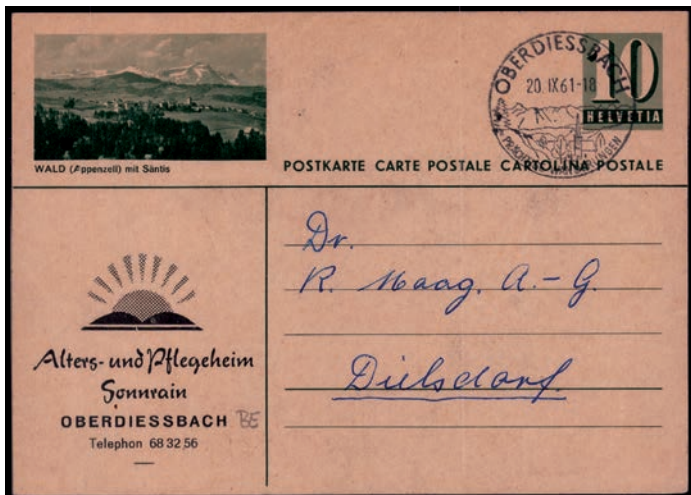 WALD (Appenzell) mit Säntis
OBERDIESSBACH
20.IX.61-18
10
HELVETIA
POSTKARTE CARTE POSTALE CARTOLINA POSTALE
Alters- und Pflegeheim
Sonnrain
OBERDIESSBACH BE
Telephon 68 32 56
Dr.
R. Maag. A.-G.
Dielsdorf.